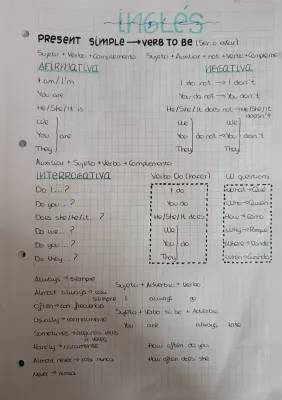 INGLÉS
PRESENT SIMPLE → VERB TO BE (Ser o estar)
Sujeto + Verbo + Complemento
Sujeto + Auxiliar + not + Verbo + Compleme
AFIRMATIVA
NEGATIVA
I am / I'm
I do not → I don't
You are
You do not → You don't
He/She/It is
He/She/It does not → He/She/It doesn't
We
You are
They
We
You do not → You don't
They
We
They
Auxiliar + Sujeto + Verbo + Complemento
INTERROGATIVA
Verbo Do (hacer)
W questions
Do I...?
Do you...?
Does she/he/it...?
Do we...?
Do you...?
Do they...?
I do
You do
He/She/It does
We
You do
They
What → Qué
Who → Quién
How → Cómo
Why → Porque
Where → Donde
When → Cuando
Always → siempre
Almost always → casi siempre
Often → con frecuencia
Usually →
Sometimes → algunas veces
Rarely → raramente
Almost never → casi nunca
Never → nunca
Sujeto + Adverbio + Verbo
I always go
Sujeto + Verbo to be + Adverbio
You are always late
How often do you
How often does she